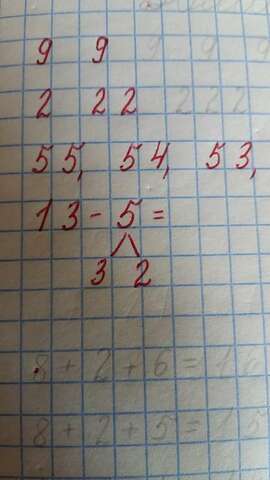 9 9 9 9 9
2 22 222
55, 54, 53,
13-5=
3 2
8+2+6=16
8+2+5=15